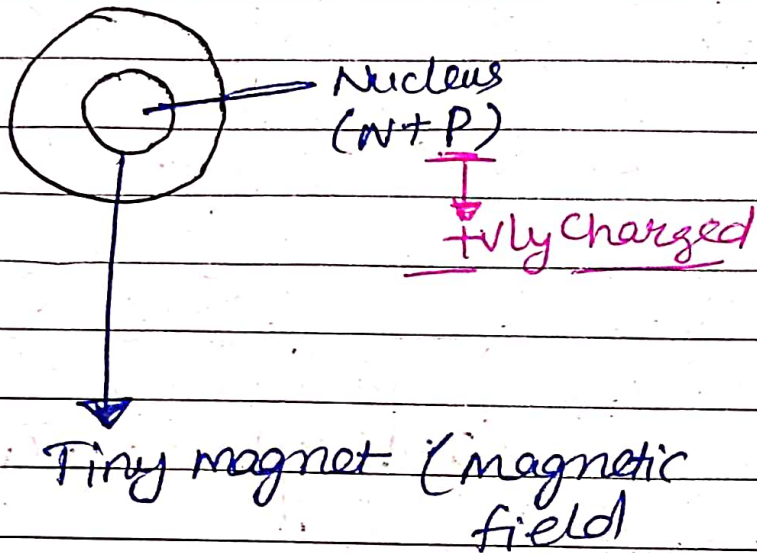 Nucleus
(N+P)
+vly charged
Tiny magnet (magnetic
field